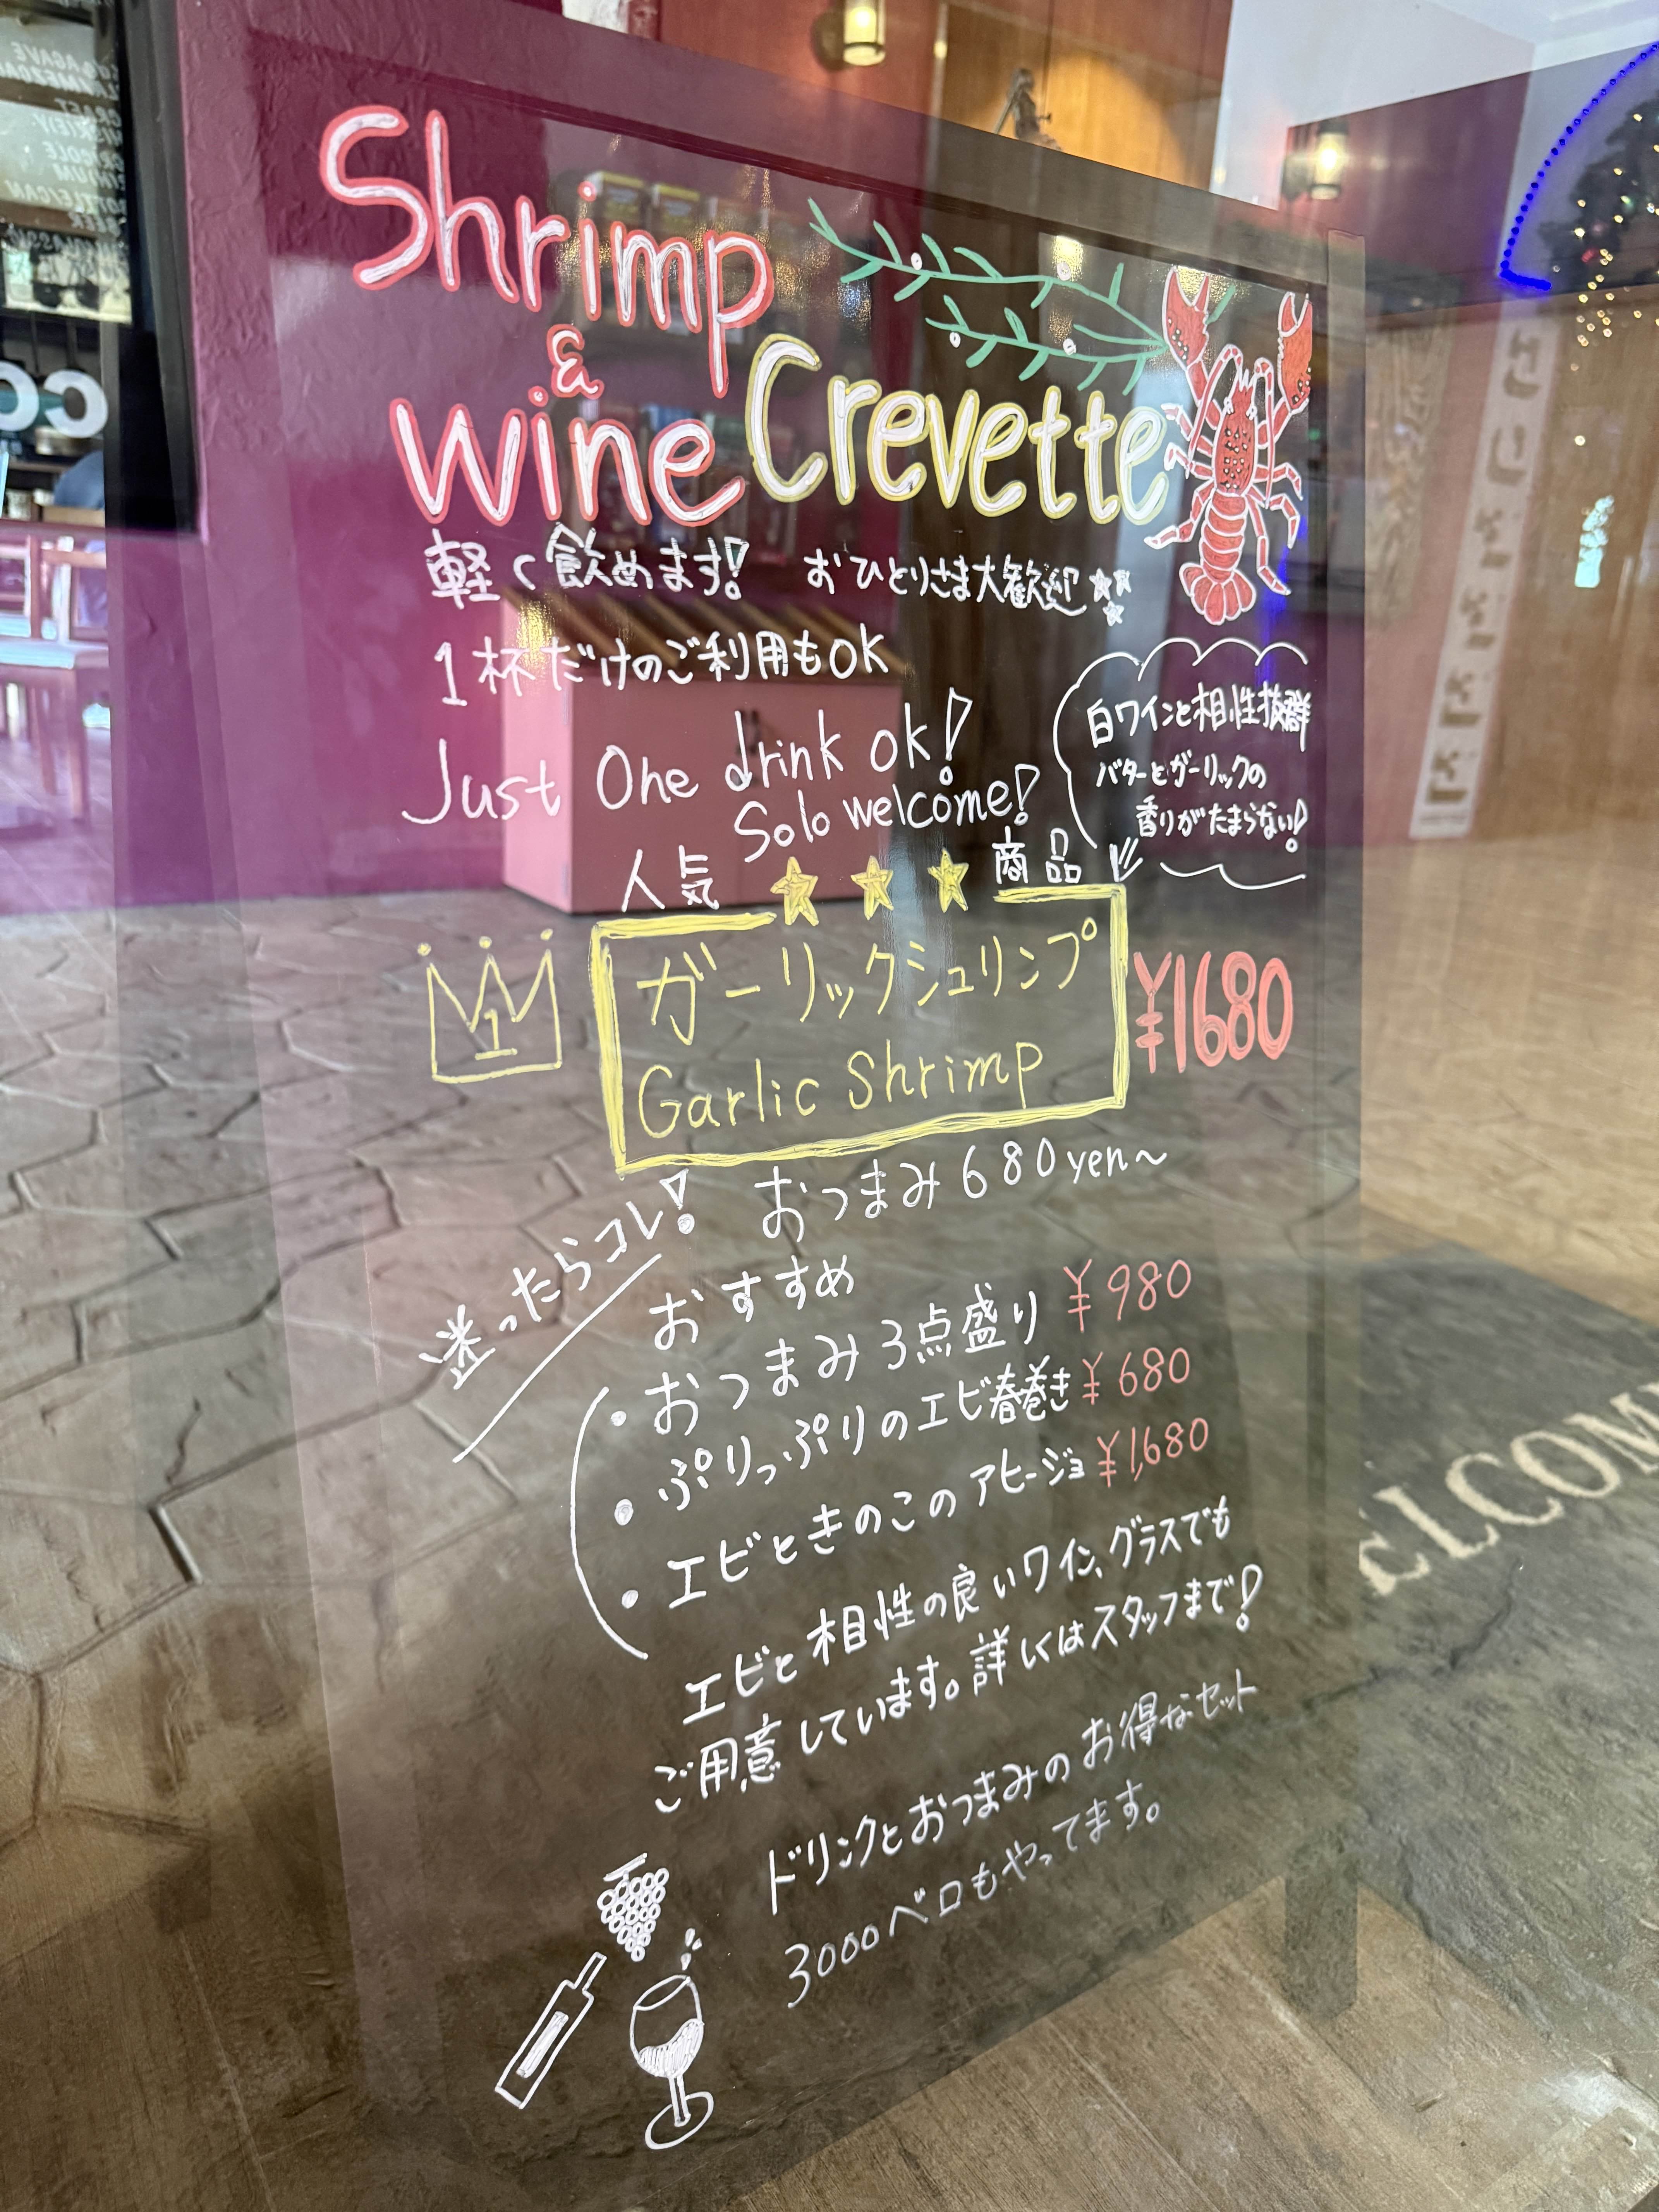 Shrimp
&
Wine Crevette
軽く飲めます! おひとりさま大歓迎
1杯だけのご利用もOK
Just One drink ok!
Solo welcome!
白ワインと相性抜群
バターとガーリックの
香りがたまらない!
人気 ★★★ 商品
1
ガーリックシュリンプ
Garlic Shrimp
¥1680
迷ったらコレ!
おつまみ680yen~
おすすめ
・おつまみ3点盛り ¥980
・ぷりっぷりのエビ春巻き ¥680
・エビときのこのアヒージョ ¥1,680
エビと相性の良いワイン、グラスでも
ご用意しています。詳しくはスタッフまで!
ドリンクとおつまみのお得なセット
3000ベロもやってます。